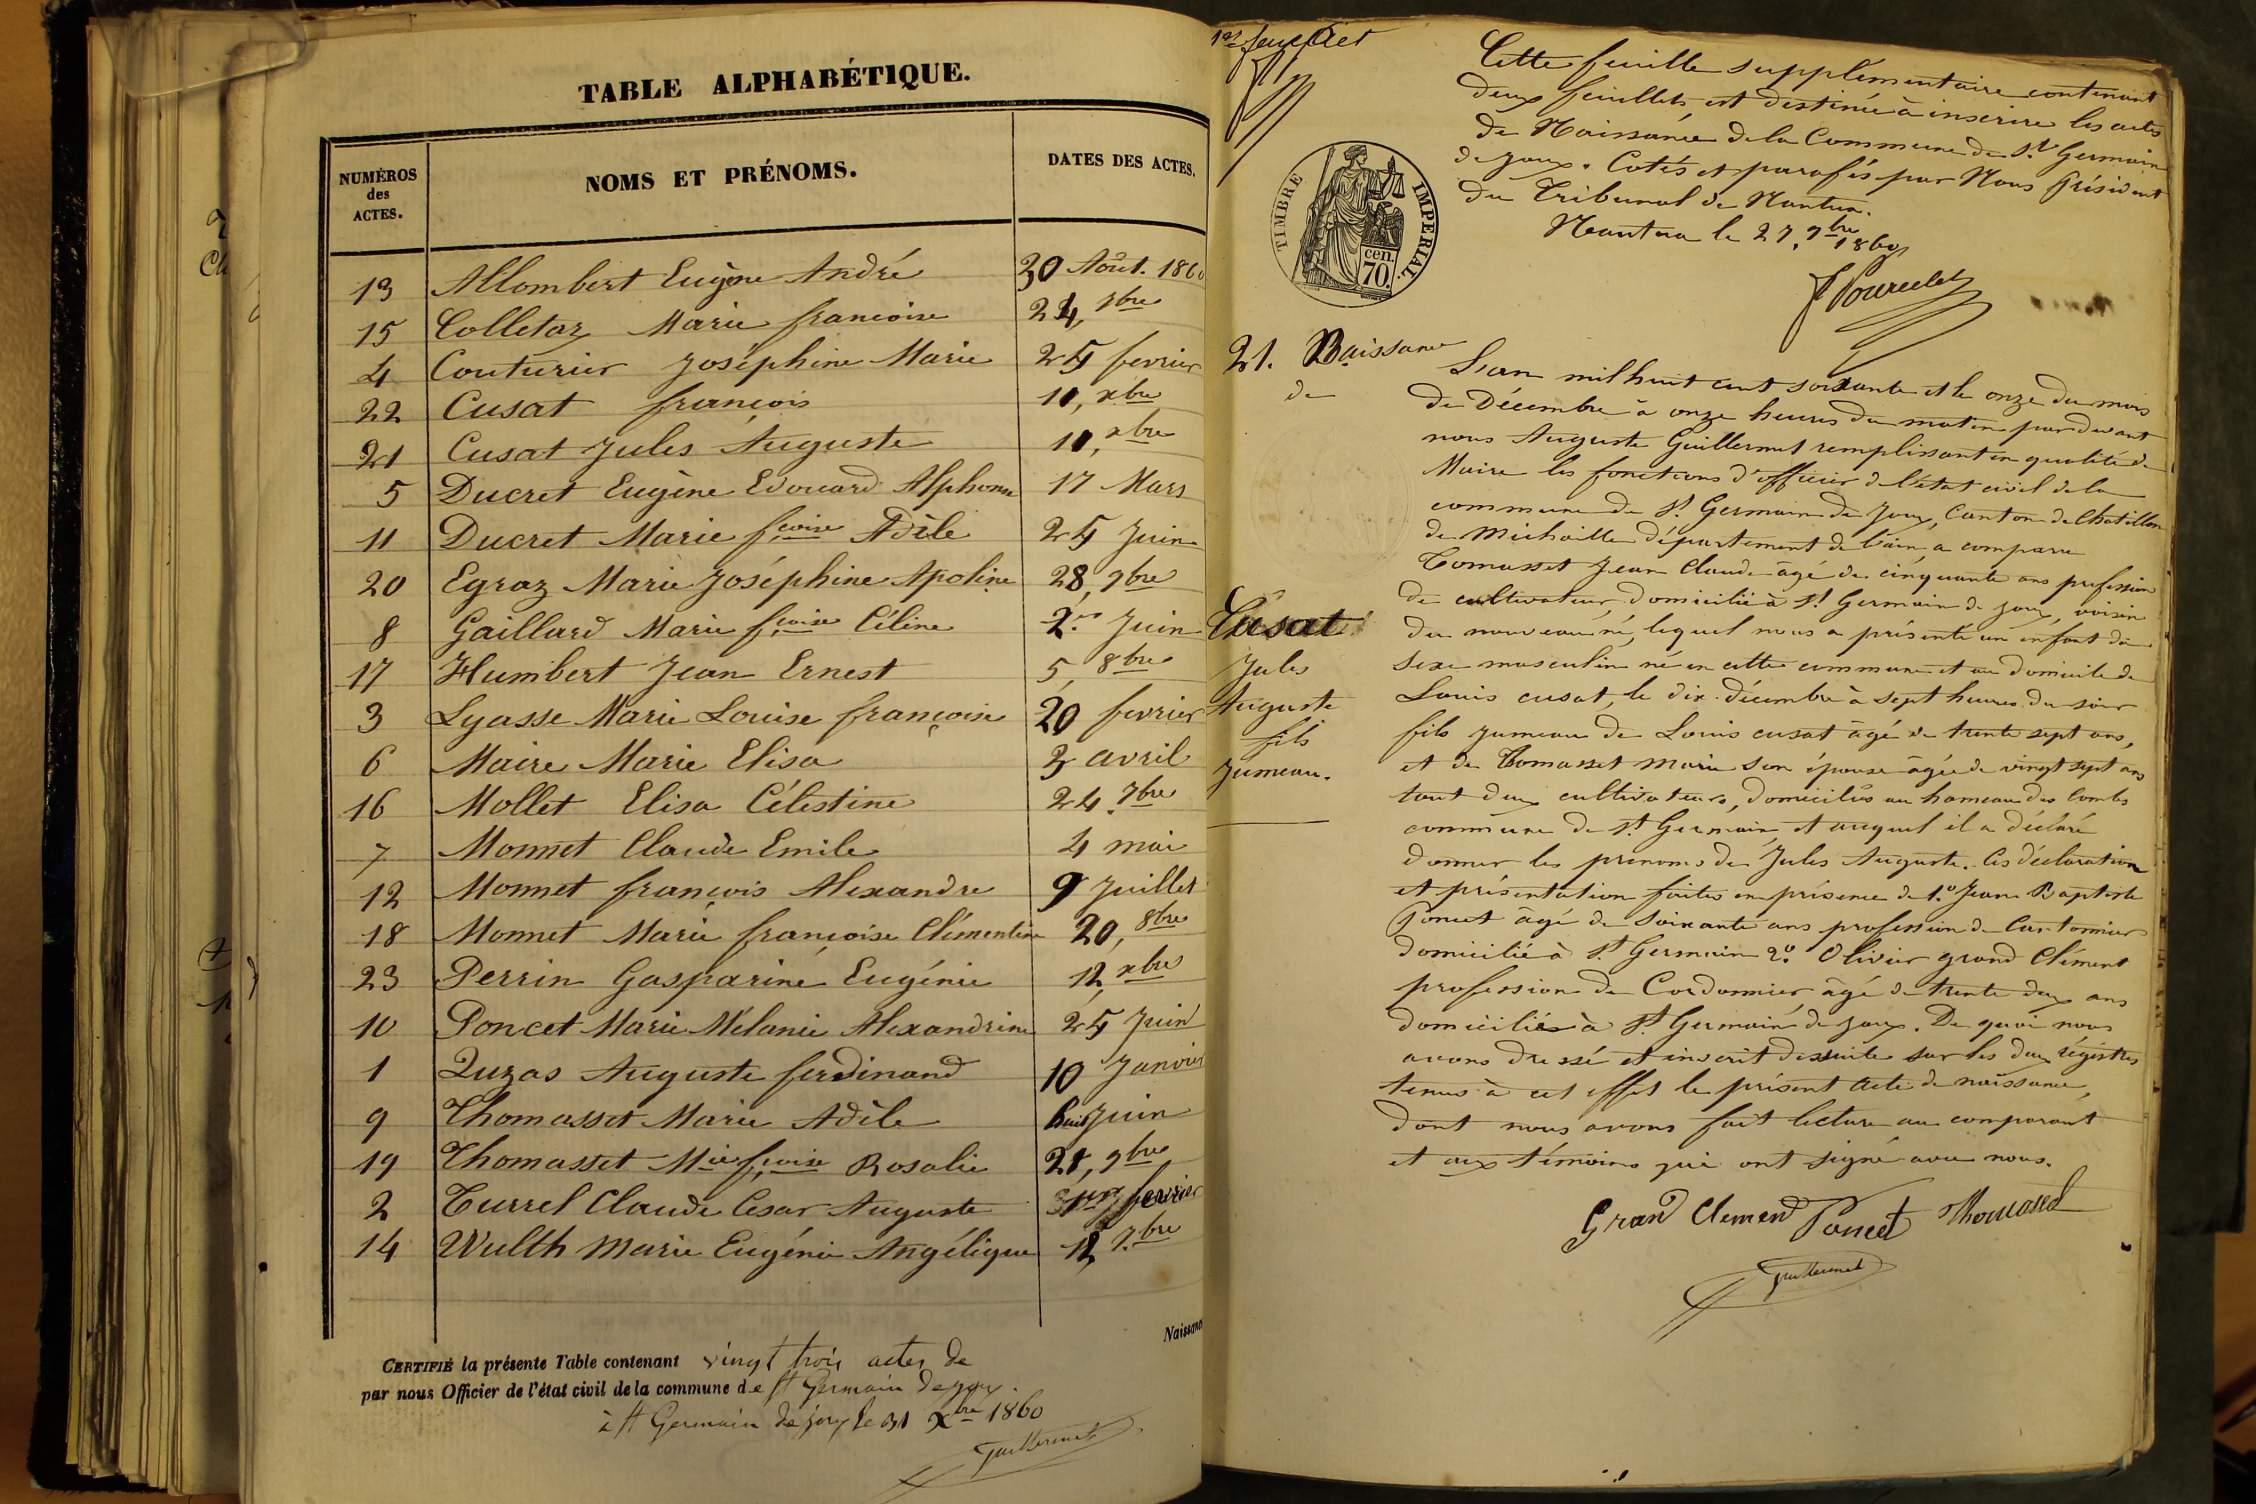 TABLE ALPHABÉTIQUE.
NUMÉROS des ACTES. NOMS ET PRÉNOMS. DATES DES ACTES.
13 Allombert Eugène André 30 Août. 1860
15 Colletaz Marie françoise 24, 7bre
4 Couturier Joséphine Marie 25 fevrier
22 Cusat françois 10, xbre
21 Cusat Jules Auguste 10, xbre
5 Ducret Eugène Edouard Alphonse 17 Mars
11 Ducret Marie fçoise Adèle 25 Juin
20 Egraz Marie Joséphine Apoline 28, 9bre
8 Gaillard Marie fçoise Céline Juin
17 Humbert Jean Ernest 5, 8bre
3 Lyasse Marie Louise françoise 20 fevrier
6 Maire Marie Elisa 3 avril
16 Mollet Elisa Célestine 24 7bre
7 Monnet Claude Emile 4 mai
12 Monnet françois Alexandre 9 Juillet
18 Monnet Marie françoise Clémentine 20, 8bre
23 Perrin Gasparine Eugénie 12, xbre
10 Poncet Marie Mélanie Alexandrine 25 Juin
1 Luzas Auguste ferdinand 10 Janvier
9 Thomasset Marie Adèle huit Juin
19 Thomasset Mie fçoise Rosalie 28, 9bre
2 Turrel Claude Cesar Auguste fevrier
14 Wulth Marie Eugénie Angélique 12 7.bre
Naissance
CERTIFIÉ la présente Table contenant vingt trois actes de
par nous Officier de l'état civil de la commune de St Germain de joux
à St Germain de joux le 31 Xbre 1860
Guillermet
1er feuillet
Cette feuille supplémentaire contenant
deux feuillets est destinée à inscrire les actes
de Naissance de la Commune de St Germain
de joux. Cotés et parafés par Nous Président
du Tribunal de Nantua.
Nantua le 27. 9bre 1860
TIMBRE IMPÉRIAL.
cen.
70.
21. Naissance
de
Cusat
Jules
Auguste
fils
Jumeau.
L'an mil huit cent soixante et le onze du mois
de Décembre à onze heures du matin par devant
nous Auguste Guillermet remplissant en qualité de
Maire les fonctions d'officier de l'état civil de la
commune de St Germain de Joux, Canton de Chatillon
de Michaille département de l'ain, a comparu
Tomasset Jean Claude âgé de cinquante ans profession
de cultivateur, domicilié à St Germain de joux, voisin
du nouveau né, lequel nous a présenté un enfant du
sexe masculin né en cette commune et au domicile de
Louis cusat, le dix décembre à sept heures du soir
fils jumeau de Louis cusat âgé de trente sept ans,
et de Tomasset Marie son épouse âgée de vingt sept ans
tout deux cultivateurs, domiciliés au hameau des Combes
commune de St Germain, et auquel il a déclaré
donner les prénoms de Jules Auguste. Ces déclaration
et présentation faites en présence de 1º. Jean Baptiste
Poncet âgé de soixante ans profession de Cantonnier
domicilié à St Germain 2º. Olivier grand Clément
profession de Cordonnier âgé de trente deux ans
domiciliés à St Germain de joux. De quoi nous
avons dressé et inscrit de suite sur les deux régistres
tenus à cet effet le présent acte de naissance,
dont nous avons fait lecture au comparant
et aux témoins qui ont signé avec nous.
Grand Clement Poncet
Guillermet